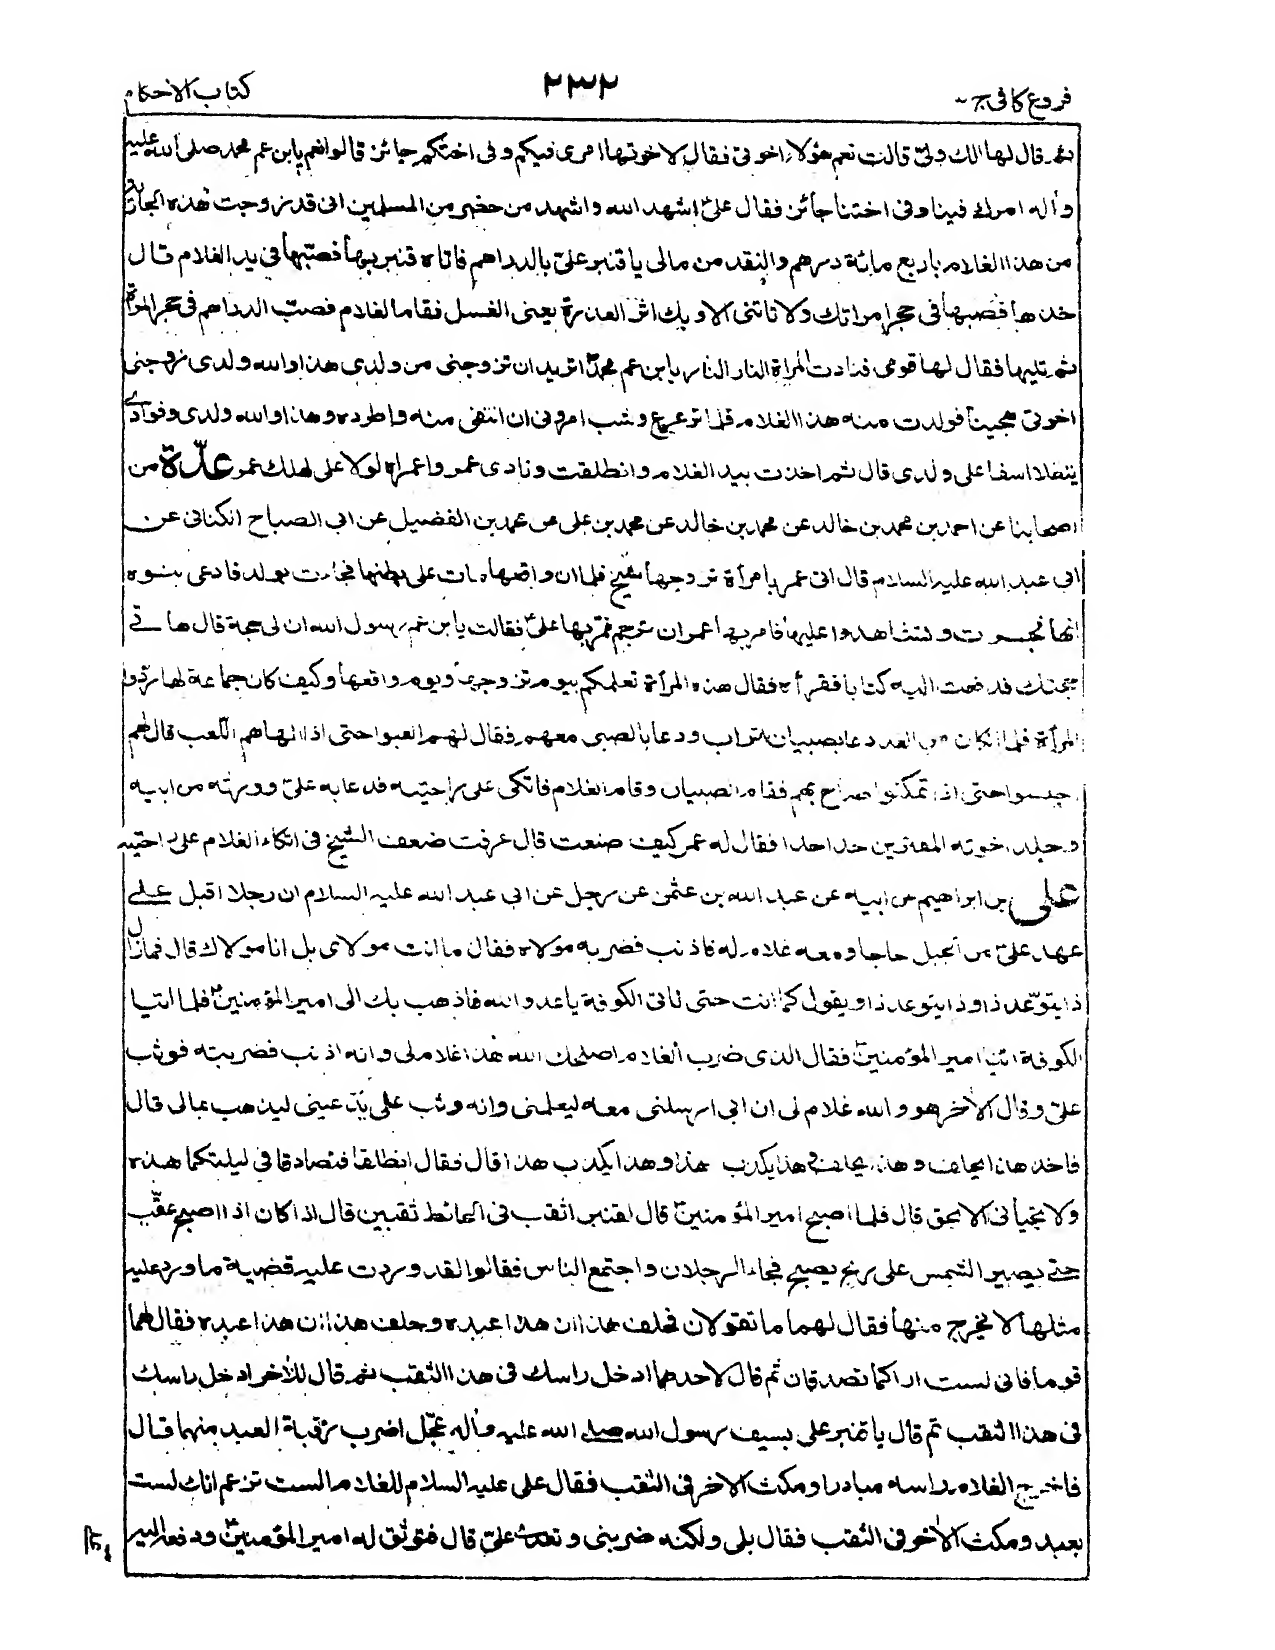 فروع كافى ج ٢
٢٣٢
كتاب الاحكام
ثم قال لها الك ولىّ قالت نعم هؤلاء اخوتى فقال لاخوتها امرى فيكم وفى اختكم جائز قالوا نعم يا بن عم محمد صلى الله عليه
وآله امرك فينا وفى اختنا جائز فقال علىّ اشهد الله واشهد من حضر من المسلمين انى قد زوجت هذه الجارية
من هذا الغلام باربع مائة درهم والنقد من مالى يا قنبر علىّ بالدراهم فاتاه قنبر بها فصبّها فى يد الغلام قال
خذها فصبها فى حجر امراتك ولا تاتنى الا وبك اثر العذرة يعنى الغسل فقام الغلام فصب الدراهم فى حجر المراة
ثم تلبها فقال لها قومى فنادت المراة النار النار يا بن عم محمدّ اتريد ان تزوجنى من ولدى هذا والله ولدى زوجنى
اخوتى هجينا فولدت منه هذا الغلام فلما ترعرع وشب امرونى ان انتفى منه واطرده وهذا والله ولدى وفوادى
يتقلا اسفا على ولدى قال ثم اخذت بيد الغلام وانطلقت ونادى عمر واعمراه لولا على لهلك عمر عدّة من
اصحابنا عن احمد بن محمد بن خالد عن محمد بن على عن محمد بن الفضيل عن ابى الصباح الكنانى عن
ابى عبد الله عليه السلام قال اتى عمر بامرأة تزوجها شيخ فلما ان واقعها مات على بطنها فجاءت بولد فادعى بنوه
انها فجرت وتشاهدوا عليها فامر بها عمر ان ترجم فمرّ بها علىّ فقالت يا بن عم رسول الله ان لى حجة قال هاتى
حجتك فدفعت اليه كتابا فقرأه فقال هذه المرأة تعلمكم بيوم تزوجها ويوم واقعها وكيف كان جماعه لها ردّوا
المرأة فلما كان من الغد دعا بصبيان اتراب ودعا بالصبى معهم فقال لهم العبوا حتى اذا الهاهم اللعب قال لهم
اجلسوا حتى اذا تمكنوا صاح بهم فقام الصبيان وقام الغلام فاتكى على راحتيه فدعا به علىّ وورثه من ابيه
وجلد اخوته المفترين حدا حدا فقال له عمر كيف صنعت قال عرفت ضعف الشيخ فى اتكاء الغلام على راحتيه
على بن ابراهيم عن ابيه عن عبد الله بن عثمن عن رجل عن ابى عبد الله عليه السلام ان رجلا اقبل على
عهد علىّ من الجبل حاجا ومعه غلام له فاذنب فضربه مولاه فقال ما انت مولاى بل انا مولاك قال فما زال
ذا يتوعّد ذا وذا يتوعد ذا ويقول كما انت حتى ناتى الكوفة يا عدو الله فاذهب بك الى امير المؤمنينّ فلما اتيا
الكوفة اتيا امير المؤمنينّ فقال الذى ضرب الغلام اصلحك الله هذا غلام لى وانه اذنب فضربته فوثب
علىّ وقال الاخر هو والله غلام لى ان ابى ارسلنى معه ليعلمنى وانه وثب على يدّعينى ليذهب بمالى قال
فاخذ هذا يحلف وهذا يحلف وهذا يكذب هذا وهذا يكذب هذا قال فقال انطلقا فتصادقا فى ليلتكما هذه
ولا تجيأنى الا بحق قال فلما اصبح امير المؤمنينّ قال لقنبر اثقب فى الحائط ثقبين قال اذا كان اذا اصبح عقّب
حتى يصير الشمس على رمح يصبح فجاء الرجلان واجتمع الناس فقالوا لقد وردت عليه قضية ما ورد عليه
مثلها لا يخرج منها فقال لهما ما تقولان فحلف هذا ان هذا عبده وحلف هذا ان هذا عبده فقال لهما
قوما فانى لست اراكما تصدقان ثم قال لاحدهما ادخل راسك فى هذا الثقب ثم قال للاخر ادخل راسك
فى هذا الثقب ثم قال يا قنبر على بسيف رسول الله صلى الله عليه وآله عجّل اضرب رقبة العبد منهما قال
فاخرج الغلام راسه مبادرا ومكث الاخر فى الثقب فقال على عليه السلام للغلام الست تزعم انك لست
بعبد ومكث الاخر فى الثقب فقال بلى ولكنه ضربنى وتعدى علىّ قال فتوثق له امير المؤمنينّ ودفعه اليه